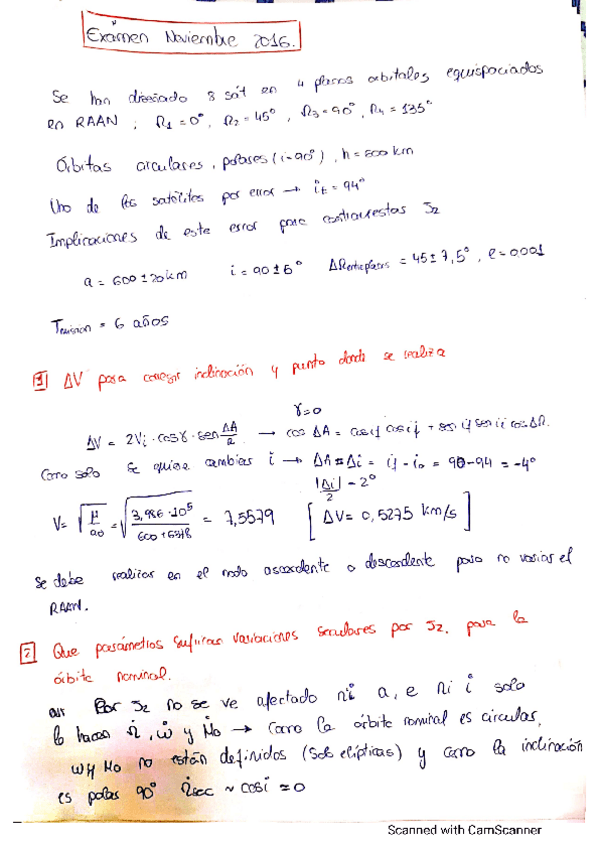 Exámen Noviembre 2016.
Se han diseñado 8 sát en 4 planos orbitales equispaciados
en RAAN ; Ω₁ = 0°, Ω₂ = 45°, Ω₃ = 90°, Ω₄ = 135°
Órbitas circulares, polares (i=90°), h = 600 km
Uno de los satélites por error → it = 94°
Implicaciones de este error para contrarrestar J2
a = 600 ± 20 km i = 90 ± 5° = 45 ± 7,5°, e = 0,001
Tmision = 6 años
1 ΔV para corregir inclinación y punto donde se realiza
γ=0
ΔV = 2Vi · cosγ · sen ΔA/2 → cos ΔA = cos if cos ii + sen if sen ii cos ΔΩ.
Como solo se quiere cambiar i → ΔA = Δi = if - io = 90-94 = -4°
|Δi|/2 = 2°
V = √(μ/ao) = √(3,986·10⁵/(600+6378)) = 7,5579 [ ΔV = 0,5275 km/s ]
Se debe realizar en el nodo ascendente o descendente para no variar el
RAAN.
2 Que parámetros sufrirán variaciones seculares por J2, para la
órbita nominal.
Por J2 no se ve afectado ni a, e ni i solo
lo hacen Ω̇, ω̇ y Ṁo → Como la órbita nominal es circular,
ω y Mo no están definidos (Sob elípticas) y como la inclinación
es polar 90° Ω̇sec ~ cos i = 0
Scanned with CamScanner